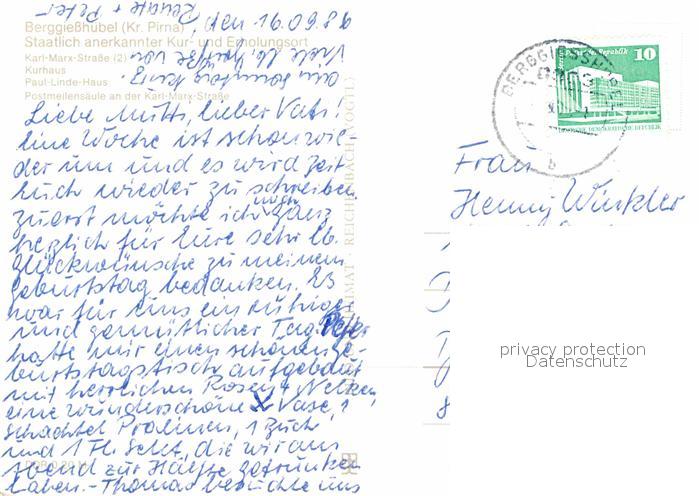 Renate + Peter
am Sonntag
Viele lb. Grüße von
, den 16.09.86
Berggießhübel (Kr. Pirna)
Staatlich anerkannter Kur- und Erholungsort
Karl-Marx-Straße (2)
Kurhaus
Paul-Linde-Haus
Postmeilensäule an der Karl-Marx-Straße
Liebe Mutti, lieber Vati!
Eine Woche ist schon wie-
der um und es wird Zeit
Euch wieder zu schreiben.
Zuerst möchte ich mich ganz
herzlich für Eure sehr lb.
Glückwünsche zu meinem
Geburtstag bedanken. Es
war für uns ein ruhiger
und gemütlicher Tag. Peter
hatte mir einen schönen Ge-
burtstagstisch aufgebaut
mit herrlichen Rosen + Nelken,
eine wunderschöne Vase, 1
Schachtel Pralinen, 1 Buch
und 1 Fl. Sekt, die wir am
Abend zur Hälfte getrunken
haben. - Thomas besuchte uns
REICHENBACH (VOGTL)
BERGGIESSHÜBEL
b
10
DEUTSCHE DEMOKRATISCHE REPUBLIK
Frau
Henny Winkler
privacy protection
Datenschutz